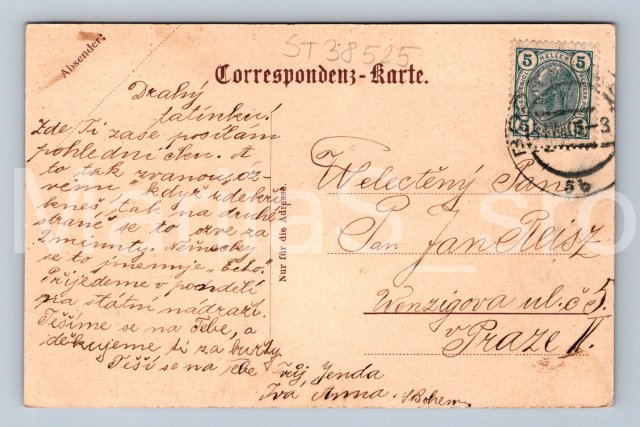 ST 38525
Absender:
Correspondenz-Karte.
5 HELLER 5
5 5
Drahý
tatínku!
Zde Ti zase posílám
pohledničku. A
to tak zvanou oz-
věnu, když zdekři-
kneš, tak na druhé
straně se to ozve za
2 minuty. Německy
se to jmenuje „Echo."
Přijedeme v pondělí
na státní nádraží.
Těšíme se na Tebe, a
děkujeme ti za burty.
Těší se na Tebe
Tvůj Jenda
Tvá Anna.
Nur für die Adresse.
Velectěný Pan
Pan Jan Reisz
Wenzigova ul. č 5.
v Praze II.
5b